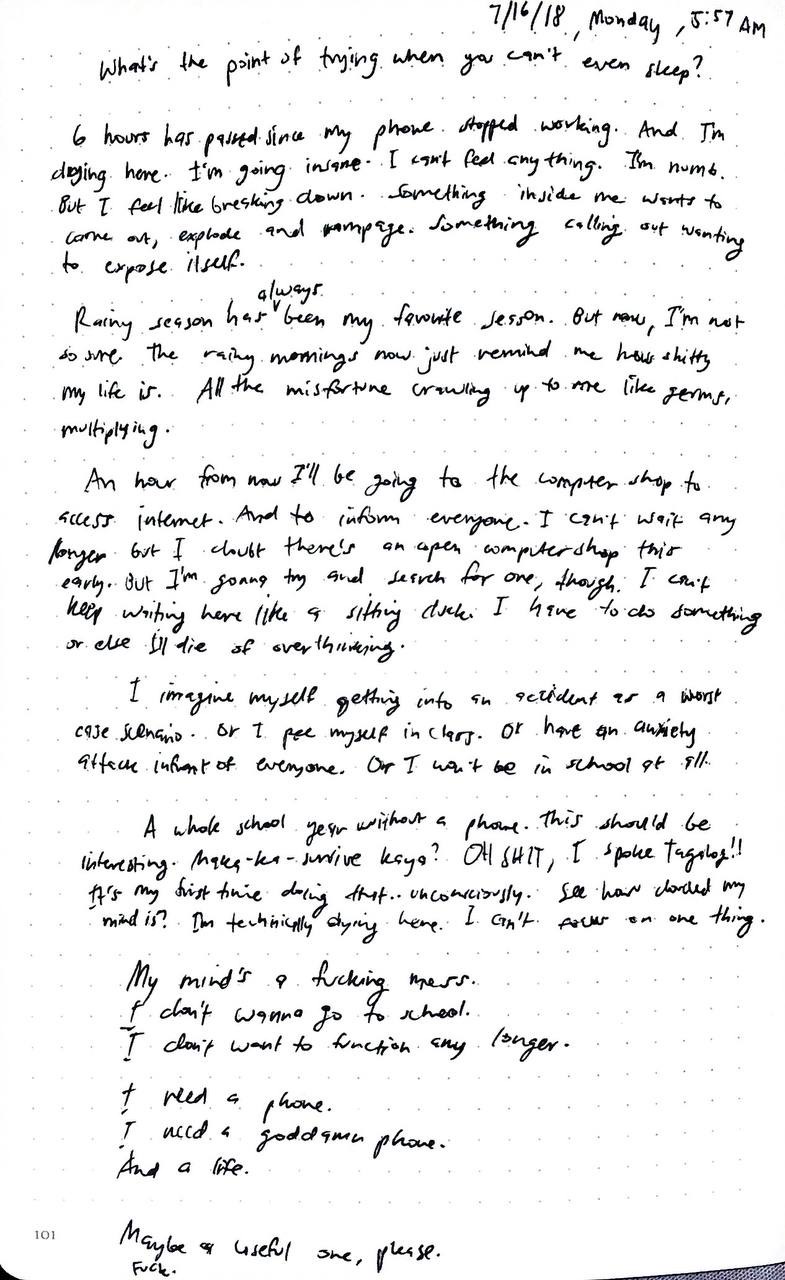 7/16/18, Monday, 5:57 AM
What's the point of trying when you can't even sleep?
6 hours has passed since my phone stopped working. And I'm
dying here. I'm going insane. I can't feel anything. I'm numb.
But I feel like breaking down. Something inside me wants to
come out, explode and rampage. Something calling out wanting
to expose itself.
always
Rainy season has been my favorite season. But now, I'm not
so sure. The rainy mornings now just remind me how shitty
my life is. All the misfortune crawling up to me like germs,
multiplying.
An hour from now I'll be going to the computer shop to
access internet. And to inform everyone. I can't wait any
longer but I doubt there's an open computer shop this
early. But I'm gonna try and search for one, though. I can't
keep waiting here like a sitting duck. I have to do something
or else I'll die of overthinking.
I imagine myself getting into an accident as a worst
case scenario. Or I pee myself in class. Or have an anxiety
attack infront of everyone. Or I won't be in school at all.
A whole school year without a phone. This should be
interesting. Maka-ka-survive kaya? OH SHIT, I spoke Tagalog!!
It's my first time doing that.. unconsciously. See how clouded my
mind is? I'm technically dying here. I can't focus on one thing.
My mind's a fucking mess.
I don't wanna go to school.
I don't want to function any longer.
I need a phone.
I need a goddamn phone.
And a life.
Maybe a useful one, please.
Fuck.
101